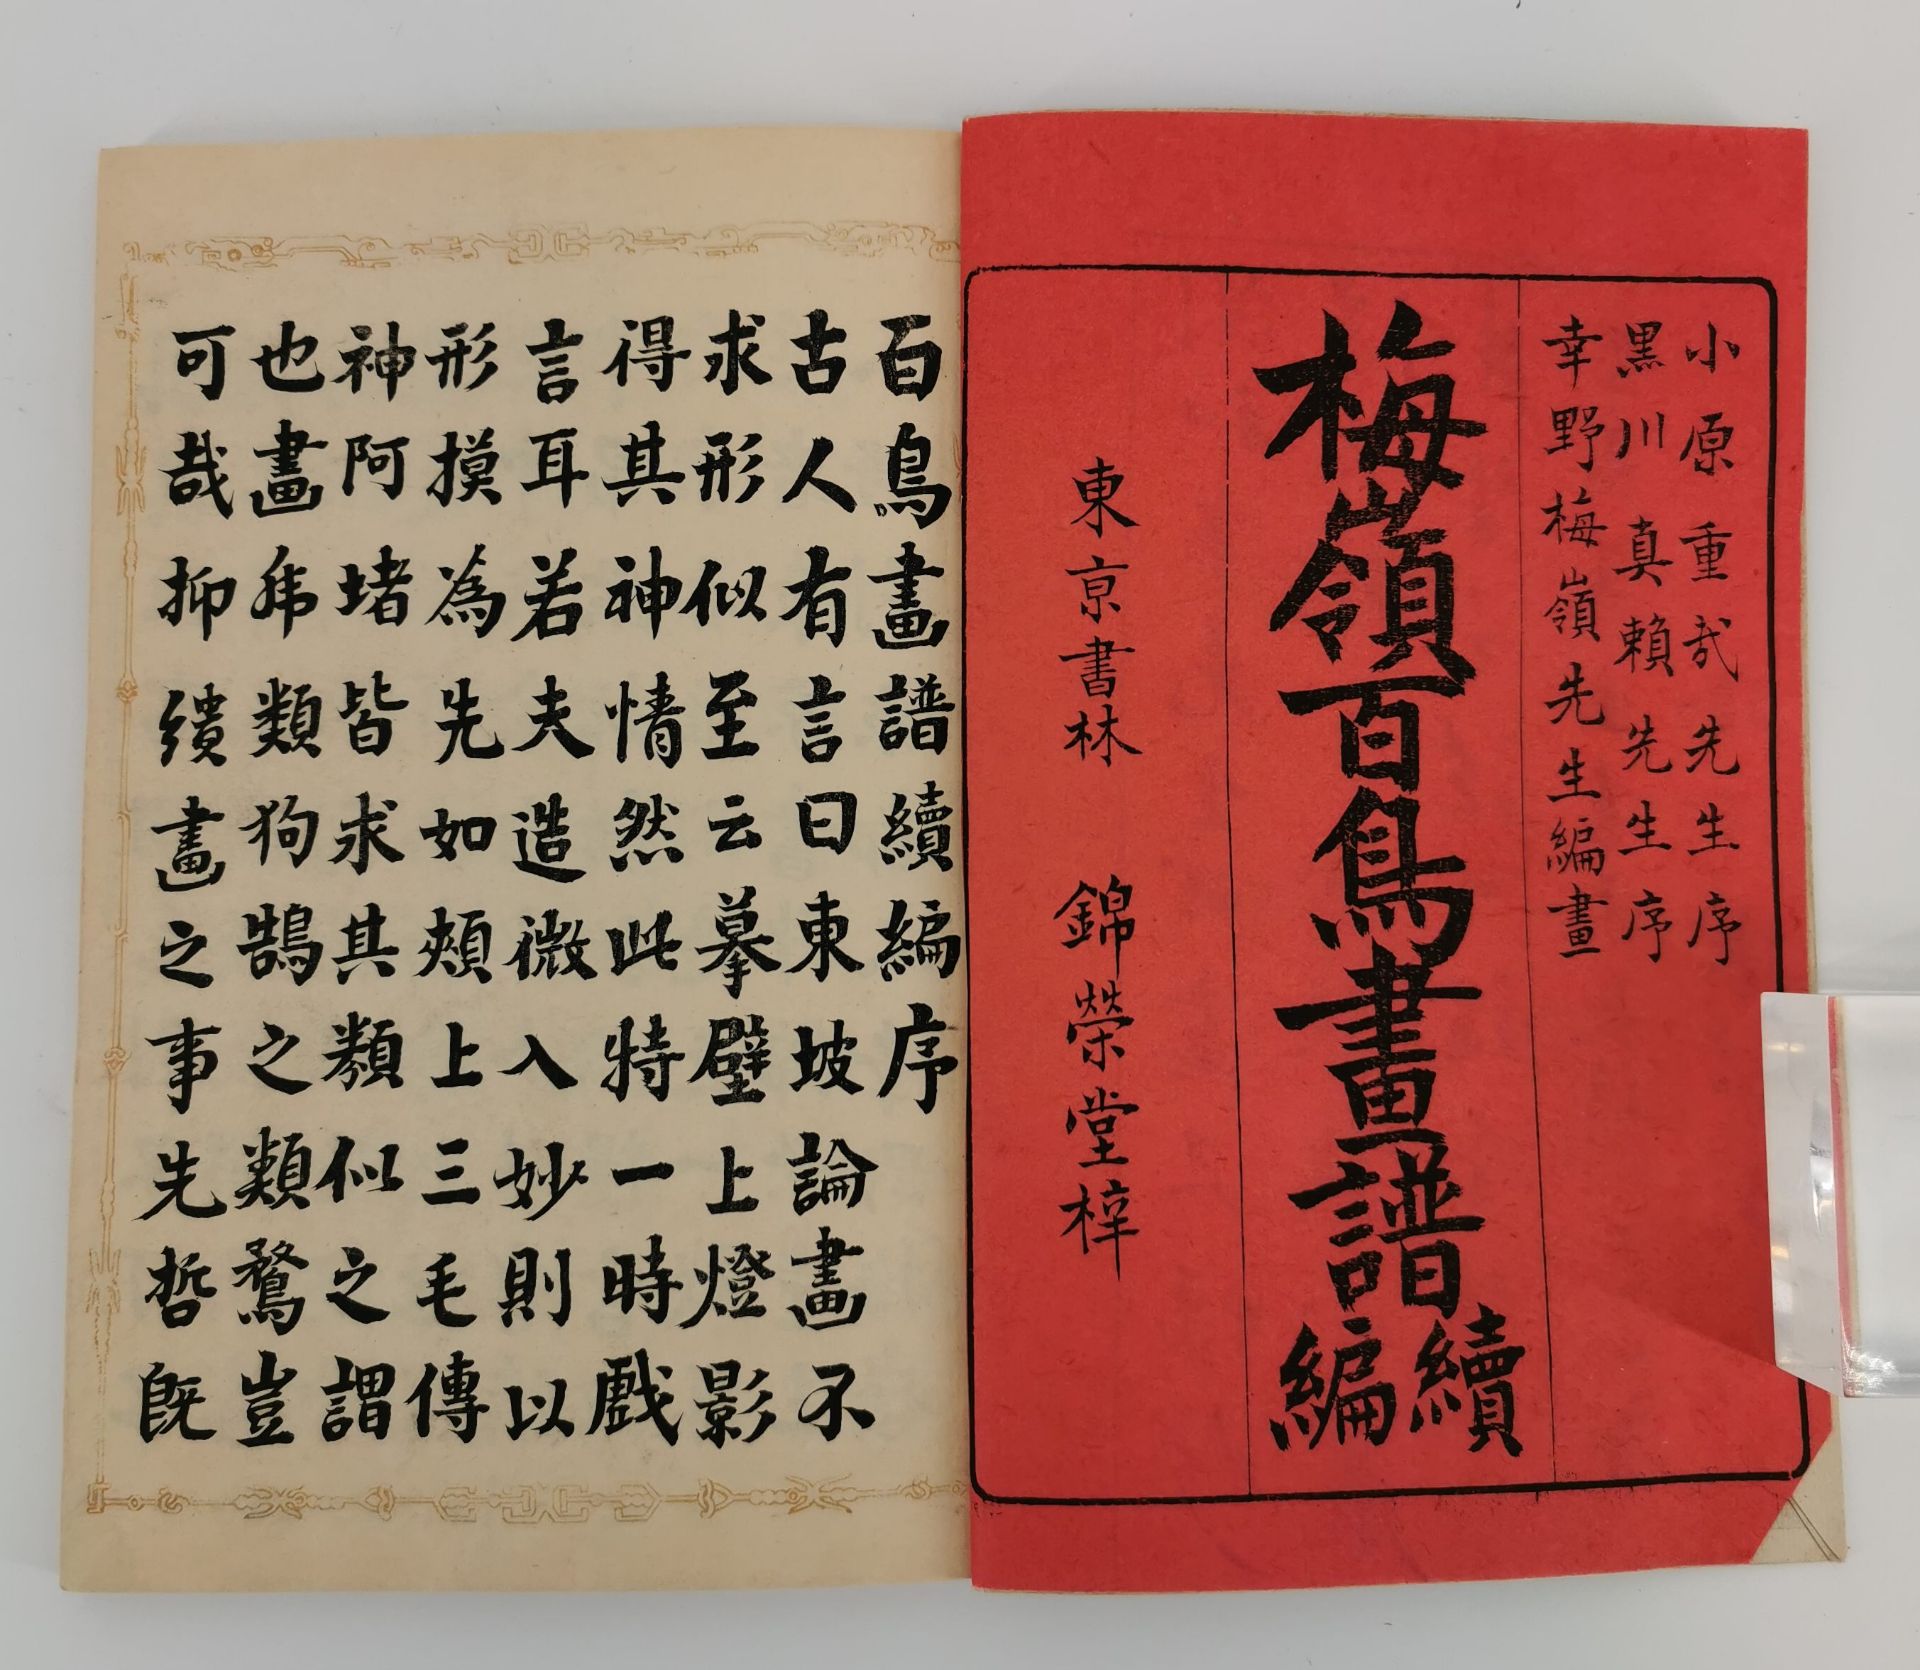 小原重哉先生序
黒川真賴先生序
幸野梅嶺先生編畫
梅嶺百鳥畫譜續編
東京書林 錦榮堂梓
百鳥畫譜續編序
古人有言曰東坡論畫不
求形似至云摹壁上燈影
得其神情然此特一時戯
言耳若夫造微入妙則以
形摸為先如頰上三毛傳
神阿堵皆求其類似之謂
也畫乕類狗鵠之類鶩豈
可哉抑繢畫之事先哲既